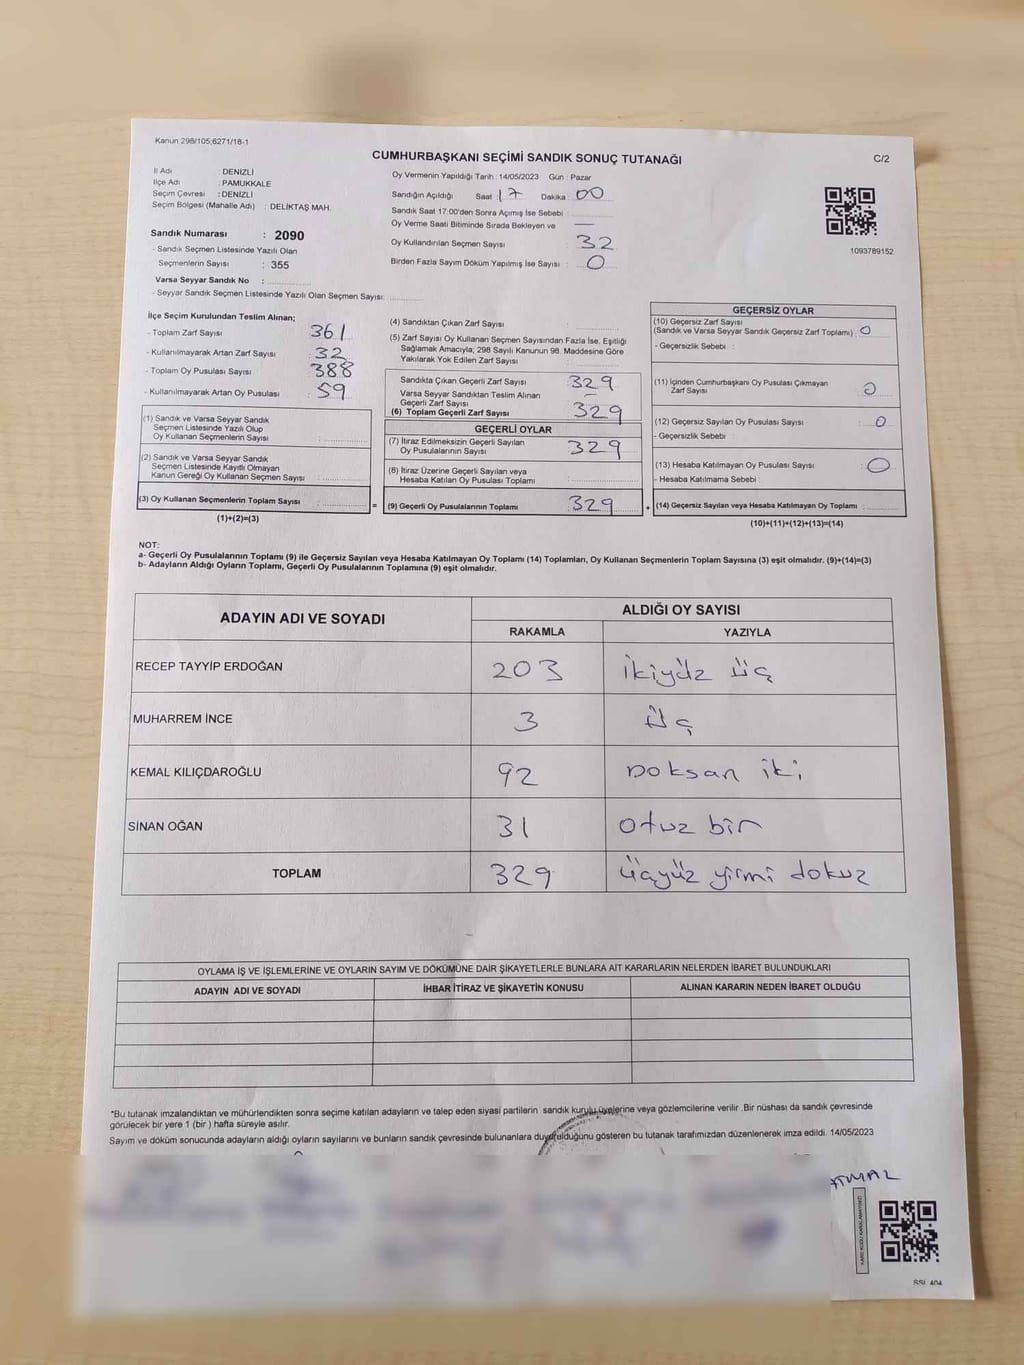 Kanun 298/105;6271/18-1
CUMHURBAŞKANI SEÇİMİ SANDIK SONUÇ TUTANAĞI
C/2
İl Adı : DENİZLİ
İlçe Adı : PAMUKKALE
Seçim Çevresi : DENİZLİ
Seçim Bölgesi (Mahalle Adı) : DELİKTAŞ MAH.
Sandık Numarası : 2090
- Sandık Seçmen Listesinde Yazılı Olan
Seçmenlerin Sayısı : 355
Varsa Seyyar Sandık No :
- Seyyar Sandık Seçmen Listesinde Yazılı Olan Seçmen Sayısı:
Oy Vermenin Yapıldığı Tarih : 14/05/2023 Gün : Pazar
Sandığın Açıldığı Saat : 17 Dakika : 00
Sandık Saat 17:00'den Sonra Açımış İse Sebebi :
Oy Verme Saati Bitiminde Sırada Bekleyen ve
Oy Kullandırılan Seçmen Sayısı : 32
Birden Fazla Sayım Döküm Yapılmış İse Sayısı : 0
1093789152
İlçe Seçim Kurulundan Teslim Alınan;
- Toplam Zarf Sayısı : 361
- Kullanılmayarak Artan Zarf Sayısı : 32
- Toplam Oy Pusulası Sayısı : 388
- Kullanılmayarak Artan Oy Pusulası : 59
(1) Sandık ve Varsa Seyyar Sandık
Seçmen Listesinde Yazılı Olup
Oy Kullanan Seçmenlerin Sayısı :
(2) Sandık ve Varsa Seyyar Sandık
Seçmen Listesinde Kayıtlı Olmayan
Kanun Gereği Oy Kullanan Seçmen Sayısı :
(3) Oy Kullanan Seçmenlerin Toplam Sayısı :
(1)+(2)=(3)
(4) Sandıktan Çıkan Zarf Sayısı :
(5) Zarf Sayısı Oy Kullanan Seçmen Sayısından Fazla İse, Eşitliği
Sağlamak Amacıyla; 298 Sayılı Kanunun 98. Maddesine Göre
Yakılarak Yok Edilen Zarf Sayısı :
Sandıkta Çıkan Geçerli Zarf Sayısı : 329
Varsa Seyyar Sandıktan Teslim Alınan
Geçerli Zarf Sayısı : –
(6) Toplam Geçerli Zarf Sayısı : 329
GEÇERLİ OYLAR
(7) İtiraz Edilmeksizin Geçerli Sayılan
Oy Pusulalarının Sayısı : 329
(8) İtiraz Üzerine Geçerli Sayılan veya
Hesaba Katılan Oy Pusulası Toplamı :
= (9) Geçerli Oy Pusulalarının Toplamı : 329
GEÇERSİZ OYLAR
(10) Geçersiz Zarf Sayısı
(Sandık ve Varsa Seyyar Sandık Geçersiz Zarf Toplamı) : 0
- Geçersizlik Sebebi :
(11) İçinden Cumhurbaşkanı Oy Pusulası Çıkmayan
Zarf Sayısı : 0
(12) Geçersiz Sayılan Oy Pusulası Sayısı : 0
- Geçersizlik Sebebi :
(13) Hesaba Katılmayan Oy Pusulası Sayısı : 0
- Hesaba Katılmama Sebebi :
+ (14) Geçersiz Sayılan veya Hesaba Katılmayan Oy Toplamı :
(10)+(11)+(12)+(13)=(14)
NOT:
a- Geçerli Oy Pusulalarının Toplamı (9) ile Geçersiz Sayılan veya Hesaba Katılmayan Oy Toplamı (14) Toplamları, Oy Kullanan Seçmenlerin Toplam Sayısına (3) eşit olmalıdır. (9)+(14)=(3)
b- Adayların Aldığı Oyların Toplamı, Geçerli Oy Pusulalarının Toplamına (9) eşit olmalıdır.
ADAYIN ADI VE SOYADI
ALDIĞI OY SAYISI
RAKAMLA YAZIYLA
RECEP TAYYİP ERDOĞAN 203 ikiyüz üç
MUHARREM İNCE 3 üç
KEMAL KILIÇDAROĞLU 92 Doksan iki
SİNAN OĞAN 31 Otuz bir
TOPLAM 329 üçyüz yirmi dokuz
OYLAMA İŞ VE İŞLEMLERİNE VE OYLARIN SAYIM VE DÖKÜMÜNE DAİR ŞİKAYETLERLE BUNLARA AİT KARARLARIN NELERDEN İBARET BULUNDUKLARI
ADAYIN ADI VE SOYADI İHBAR İTİRAZ VE ŞİKAYETİN KONUSU ALINAN KARARIN NEDEN İBARET OLDUĞU
*Bu tutanak imzalandıktan ve mühürlendikten sonra seçime katılan adayların ve talep eden siyasi partilerin sandık kurulu üyelerine veya gözlemcilerine verilir. Bir nüshası da sandık çevresinde
görülecek bir yere 1 (bir) hafta süreyle asılır.
Sayım ve döküm sonucunda adayların aldığı oyların sayılarını ve bunların sandık çevresinde bulunanlara duyurulduğunu gösteren bu tutanak tarafımızdan düzenlenerek imza edildi. 14/05/2023